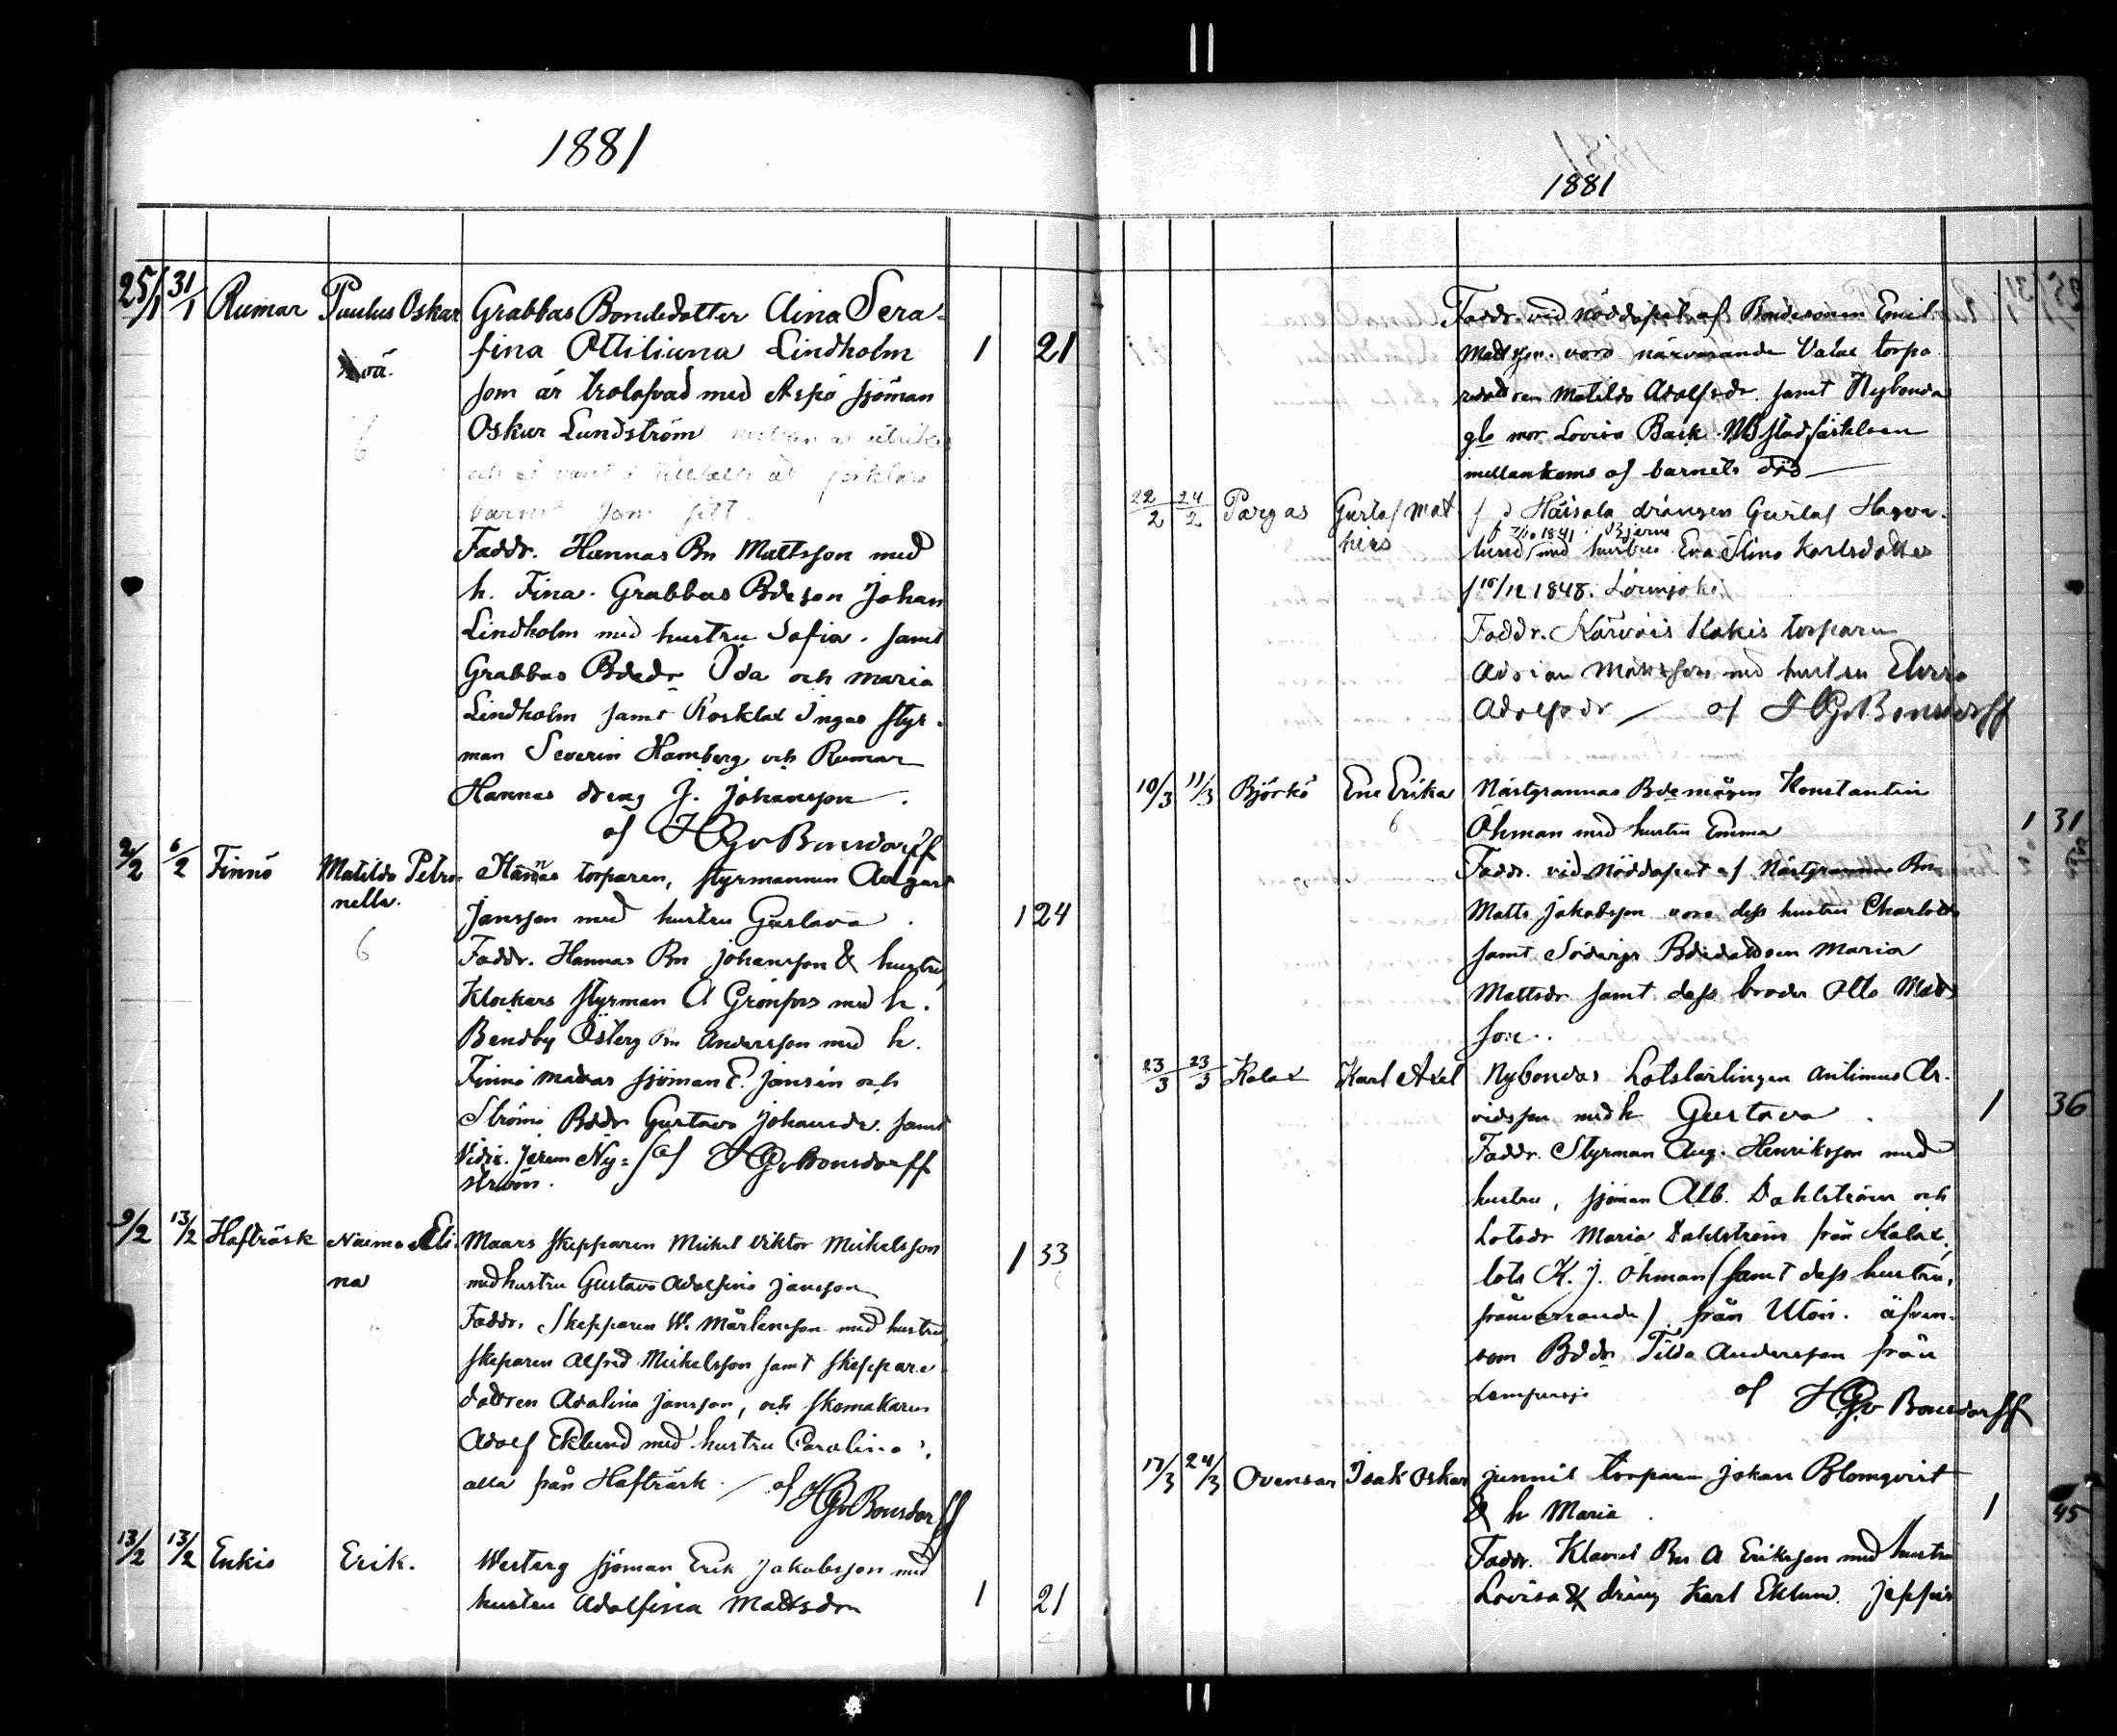 1881
25/1 31/1 Rumar Paulus Oskar Grabbas Bondedotter Aina Sera-
fina Ottiliana Lindholm 1 21
oä. som är trolofvad med Aspö sjöman
Oskar Lundström
barnet som sitt.
Faddr. Hannas Bn Mattsson med
h. Fina. Grabbas Bdeson Johan
Lindholm med hustru Sofia. samt
Grabbas Bdedr Ida och Maria
Lindholm samt Rosklax Ingas styr-
man Severin Hamberg och Rumar
Hannas dreng J. Johansson.
af HGvBonsdorff
2/2 6/2 Finnö Matilda Petro- Hannas torparen, styrmannen August
nella. Jansson med hustru Gustava. 1 24
6 Faddr. Hannas Bn Johansson & hustru,
Klockars styrman A Grönfors med h.
Bendby Österg Bn Andersson med h.
Finnö sjöman E. Jansén och
Strömö Bddr Gustava Johansdr. samt
Jerem Ny= af HGvBonsdorff
ström.
9/2 13/2 Hafträsk Naema Eli- Maars skepparen Mickel Viktor Mickelsson 1 33
na med hustru Gustava Adolfina Jansson
Faddr. Skepparen W. Mårtensson med hustru,
skeparen Alfred Mickelsson samt skeppare-
dottren Adalina Jansson, och skomakaren
Adolf Eklund med hustru Carolina,
alla från Hafträsk. af HGvBonsdorff
13/2 13/2 Enkis Erik. Westerg sjöman Erik Jakobsson med
hustru Adolfina Mattsdr 1 21
1881
Faddr. vid nöddopet af Bondesonen Emil
Mattsson voro närvarande torpa
redottren Matilda Adolfsdr. samt Nybonda
gla mor Lovisa Bask. NB stadfästelsen
mellankoms af barnets död
22/2 24/2 Pargas Gustaf Mat f d Haisala drängen Gustaf Hagga-
hias lund f 7/10 1841 i Bjerno med hustru Eva Stina Karlsdotter
f 18/12 1848.
Faddr. torparen
Adrian Mattsson med hustru
Adolfsdr af HGvBonsdorff
10/3 11/3 Björkö Ene Erika Nästgrannas Bdemågen Konstantin
6 Öhman med hustru Emma 1 31
Faddr. vid nöddopet af Nästgrannas Bn
Matts Jakobsson voro dess hustru Charlotta
samt Södergs Bdedottren Maria
Mattsdr samt dess broder Otto Matts
son.
23/3 23/3 Kalax Karl Axel Nybondas Lotslärlingen Antimus Ar-
vidsson med h Gustava 1 36
Faddr. Styrman Aug. Henriksson med
hustru, sjöman Alb. Dahlström och
Lotsdr Maria Dahlström från Kalax,
lots K. J. Öhman (samt dess hustru,
frånvarande) från Utön. äfven-
som Bddr Tilda Andersson från
af HGvBonsdorff
17/3 24/3 Ovensor Isak Oskar Junnil torparen Johan Blomqvist
& h Maria 1 45
Faddr. Klavus Bn A Eriksson med hustru
Lovisa & dräng Karl Eklund. Jeppas